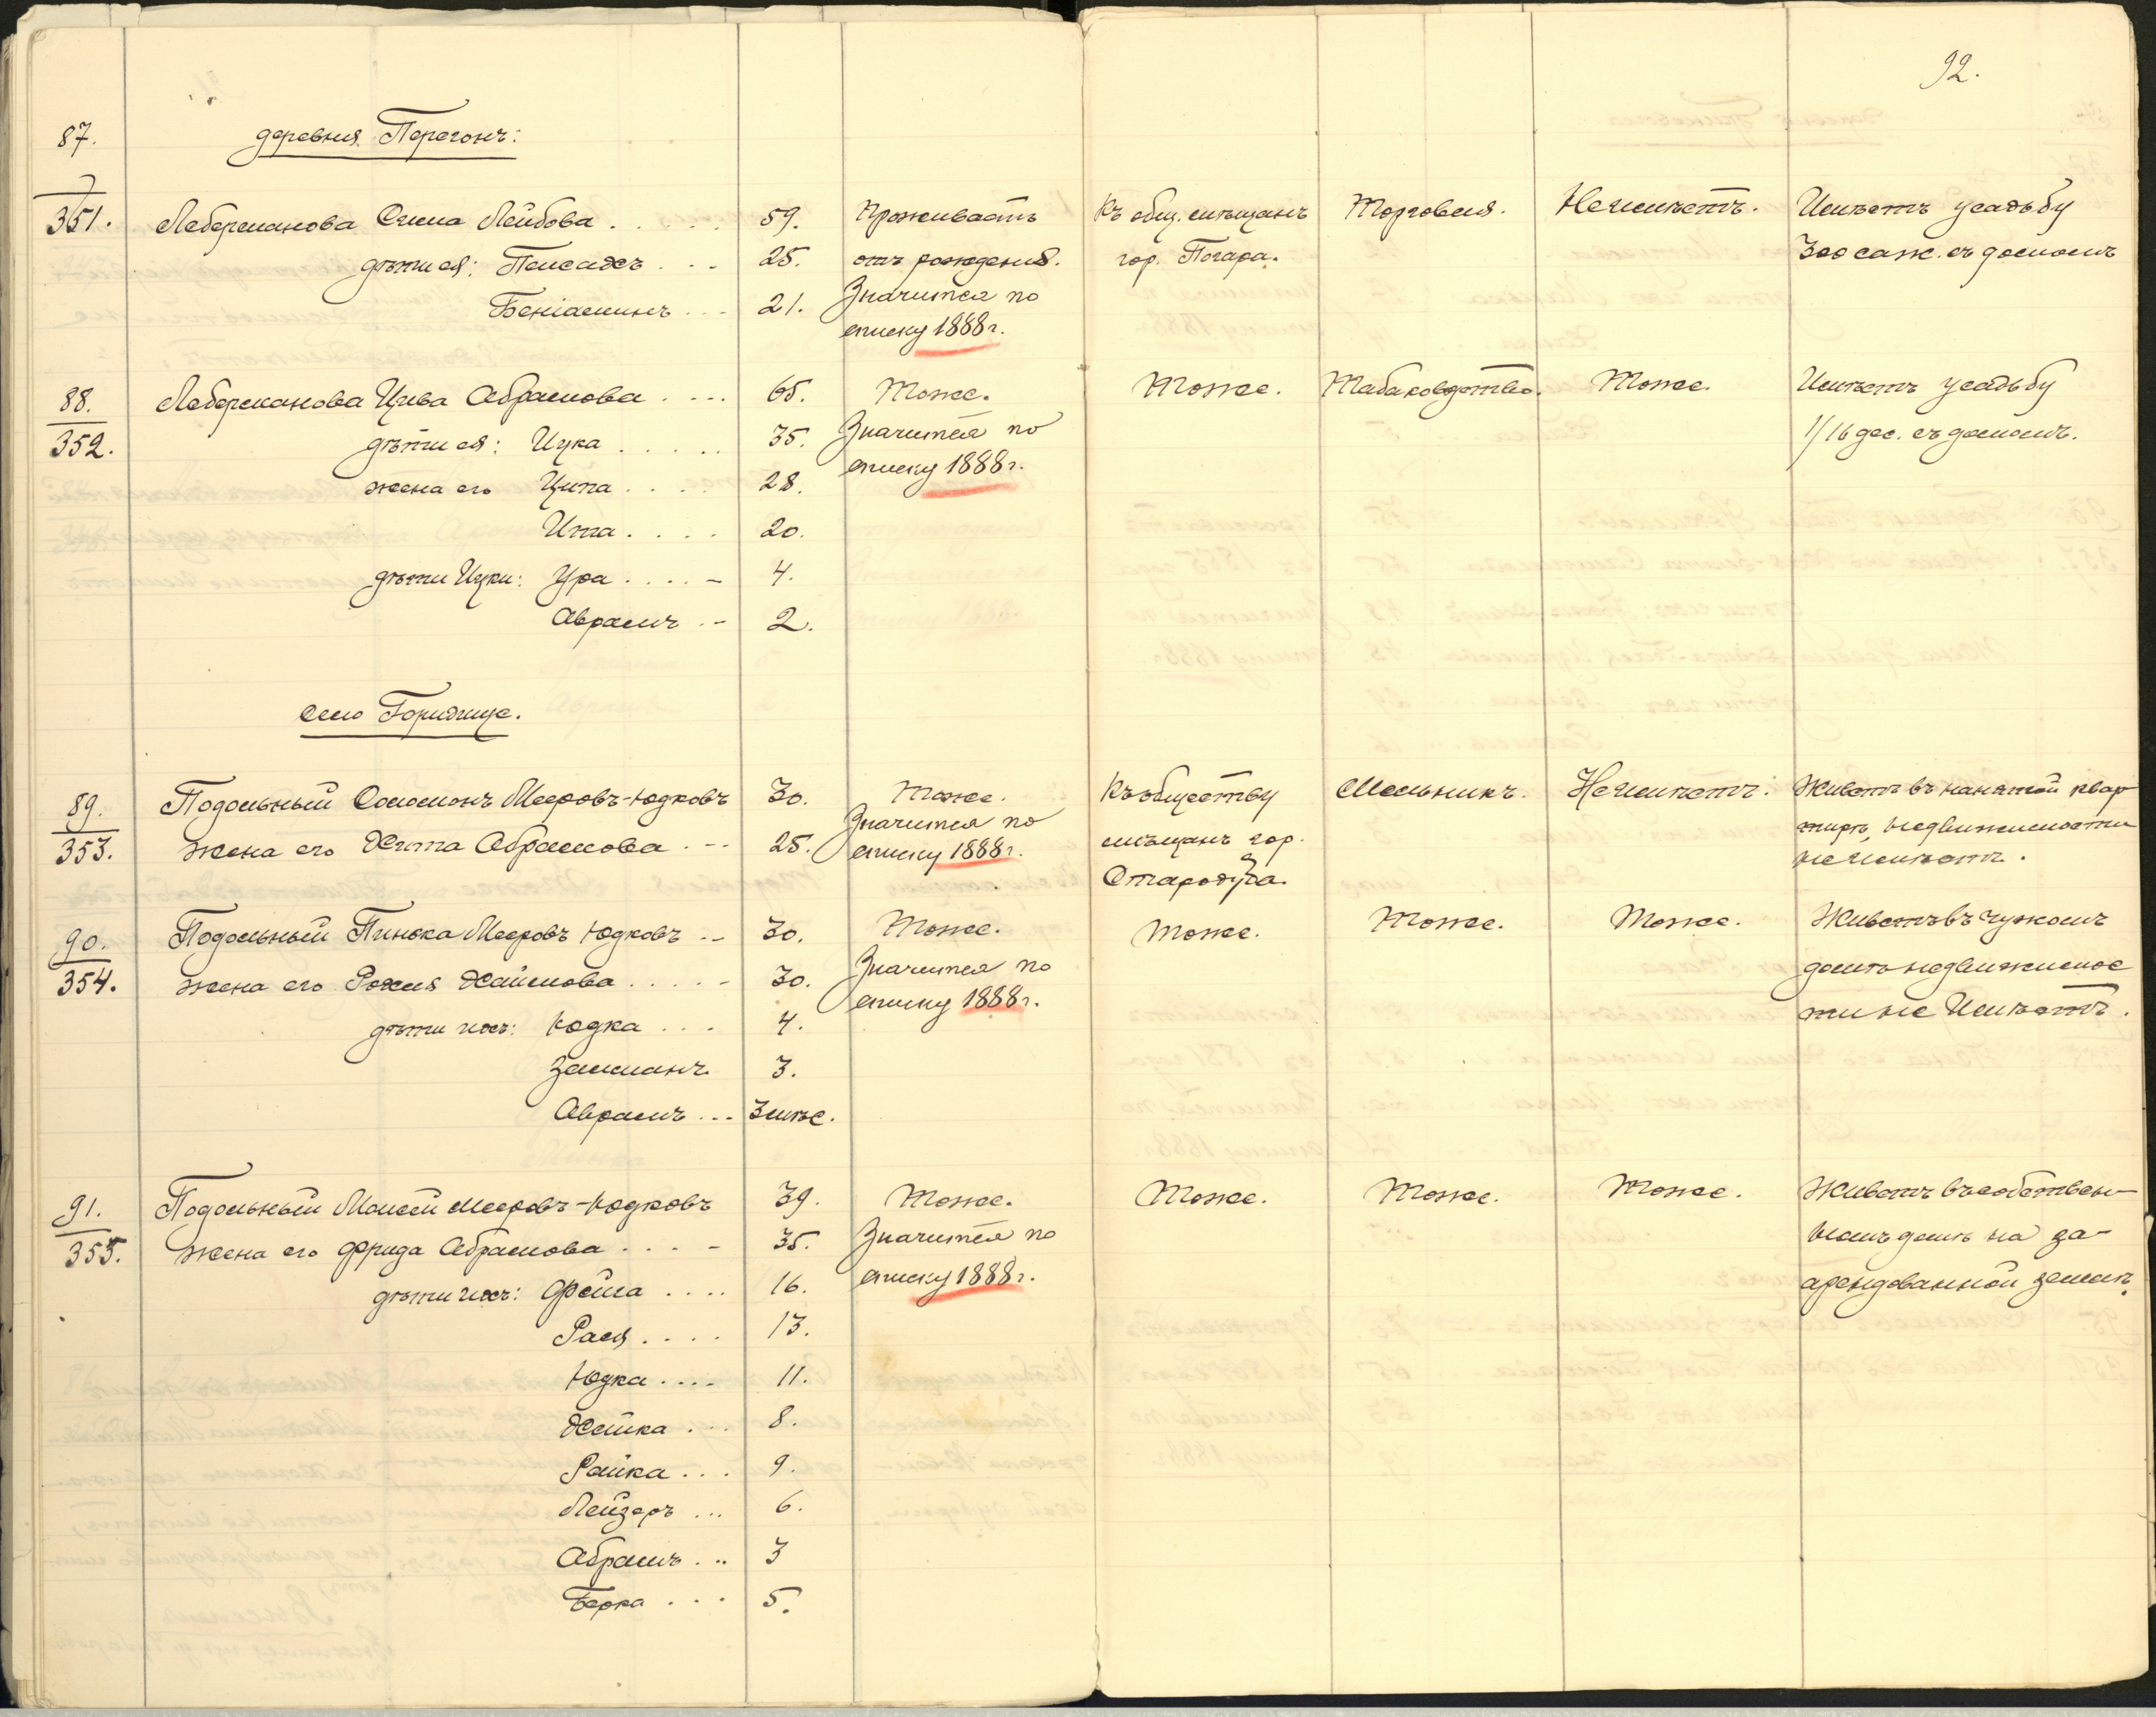 92.
87.
деревня Перегонъ:
351. Леберманова Сима Лейбова . . . . . 59. Проживаетъ Къ общ. мѣщанъ Торговля. Неимѣетъ. Имѣетъ усадьбу
дѣти ея: Пейсахъ . . . 25. отъ рожденія. гор. Погара. 300 саж. съ домомъ
Беніаминъ . . . 21. Значится по
списку 1888 г.
88. Леберманова Цива Абрамова . . . . 65. Тоже. Тоже. Табаководство. Тоже. Имѣетъ усадьбу
352. дѣти ея: Ицка . . . . . 35. Значится по 1/16 дес. съ домомъ.
жена его Ципа . . . . 28. списку 1888 г.
Ита . . . . 20.
дѣти Ицки: Ура . . . . 4.
Авраамъ . . 2.
село Горидчице.
89. Подольный Соломонъ Мееровъ-Юдковъ 30. Тоже. Къ обществу Мельникъ. Неимѣетъ. Живетъ въ нанятой квар
353. жена его Хита Абрамова . . . 25. Значится по списку 1888 г. мѣщанъ гор. тирѣ, недвижимости
Стародуба. неимѣетъ.
90. Подольный Пинька Мееровъ Юдковъ . . 30. Тоже. Тоже. Тоже. Тоже. Живетъ въ чужомъ
354. жена его Рохля Хаимова . . . . . 30. Значится по домѣ недвижимос
дѣти ихъ: Юдка . . . 4. списку 1888 г. ти не Имѣетъ.
Залманъ 3.
Авраамъ . . . 3 мѣс.
91. Подольный Моисей Мееровъ-Юдковъ 39. Тоже. Тоже. Тоже. Тоже. Живетъ въ собствен-
355. жена его Фрида Абрамова . . . . 35. Значится по номъ домѣ на за-
дѣти ихъ: Фейга . . . . 16. списку 1888 г. арендованной землѣ.
Рася . . . . 13.
Юдка . . . . 11.
Хейка . . . 8.
Райка . . . 9.
Лейзеръ . . . 6.
Абрамъ . . . 3
Берка . . . 5.